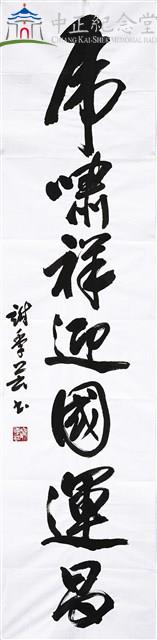 中正紀念堂
CHIANG KAI-SHEK MEMORIAL HALL
虎嘯祥迎國運昌
謝季芸書